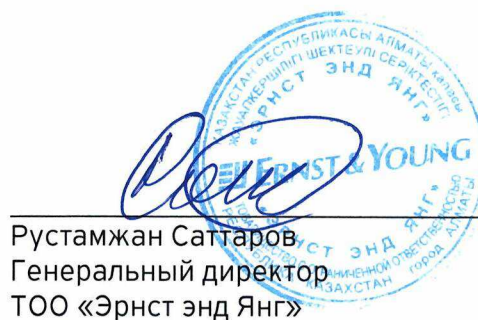 ҚАЗАҚСТАН РЕСПУБЛИКАСЫ АЛМАТЫ қаласы
ЖАУАПКЕРШІЛІГІ ШЕКТЕУЛІ СЕРІКТЕСТІГІ
«ЭРНСТ ЭНД ЯНГ»
ERNST & YOUNG
«ЭРНСТ ЭНД ЯНГ»
ТОВАРИЩЕСТВО С ОГРАНИЧЕННОЙ ОТВЕТСТВЕННОСТЬЮ
РЕСПУБЛИКА КАЗАХСТАН ГОРОД АЛМАТЫ
Рустамжан Саттаров
Генеральный директор
ТОО «Эрнст энд Янг»